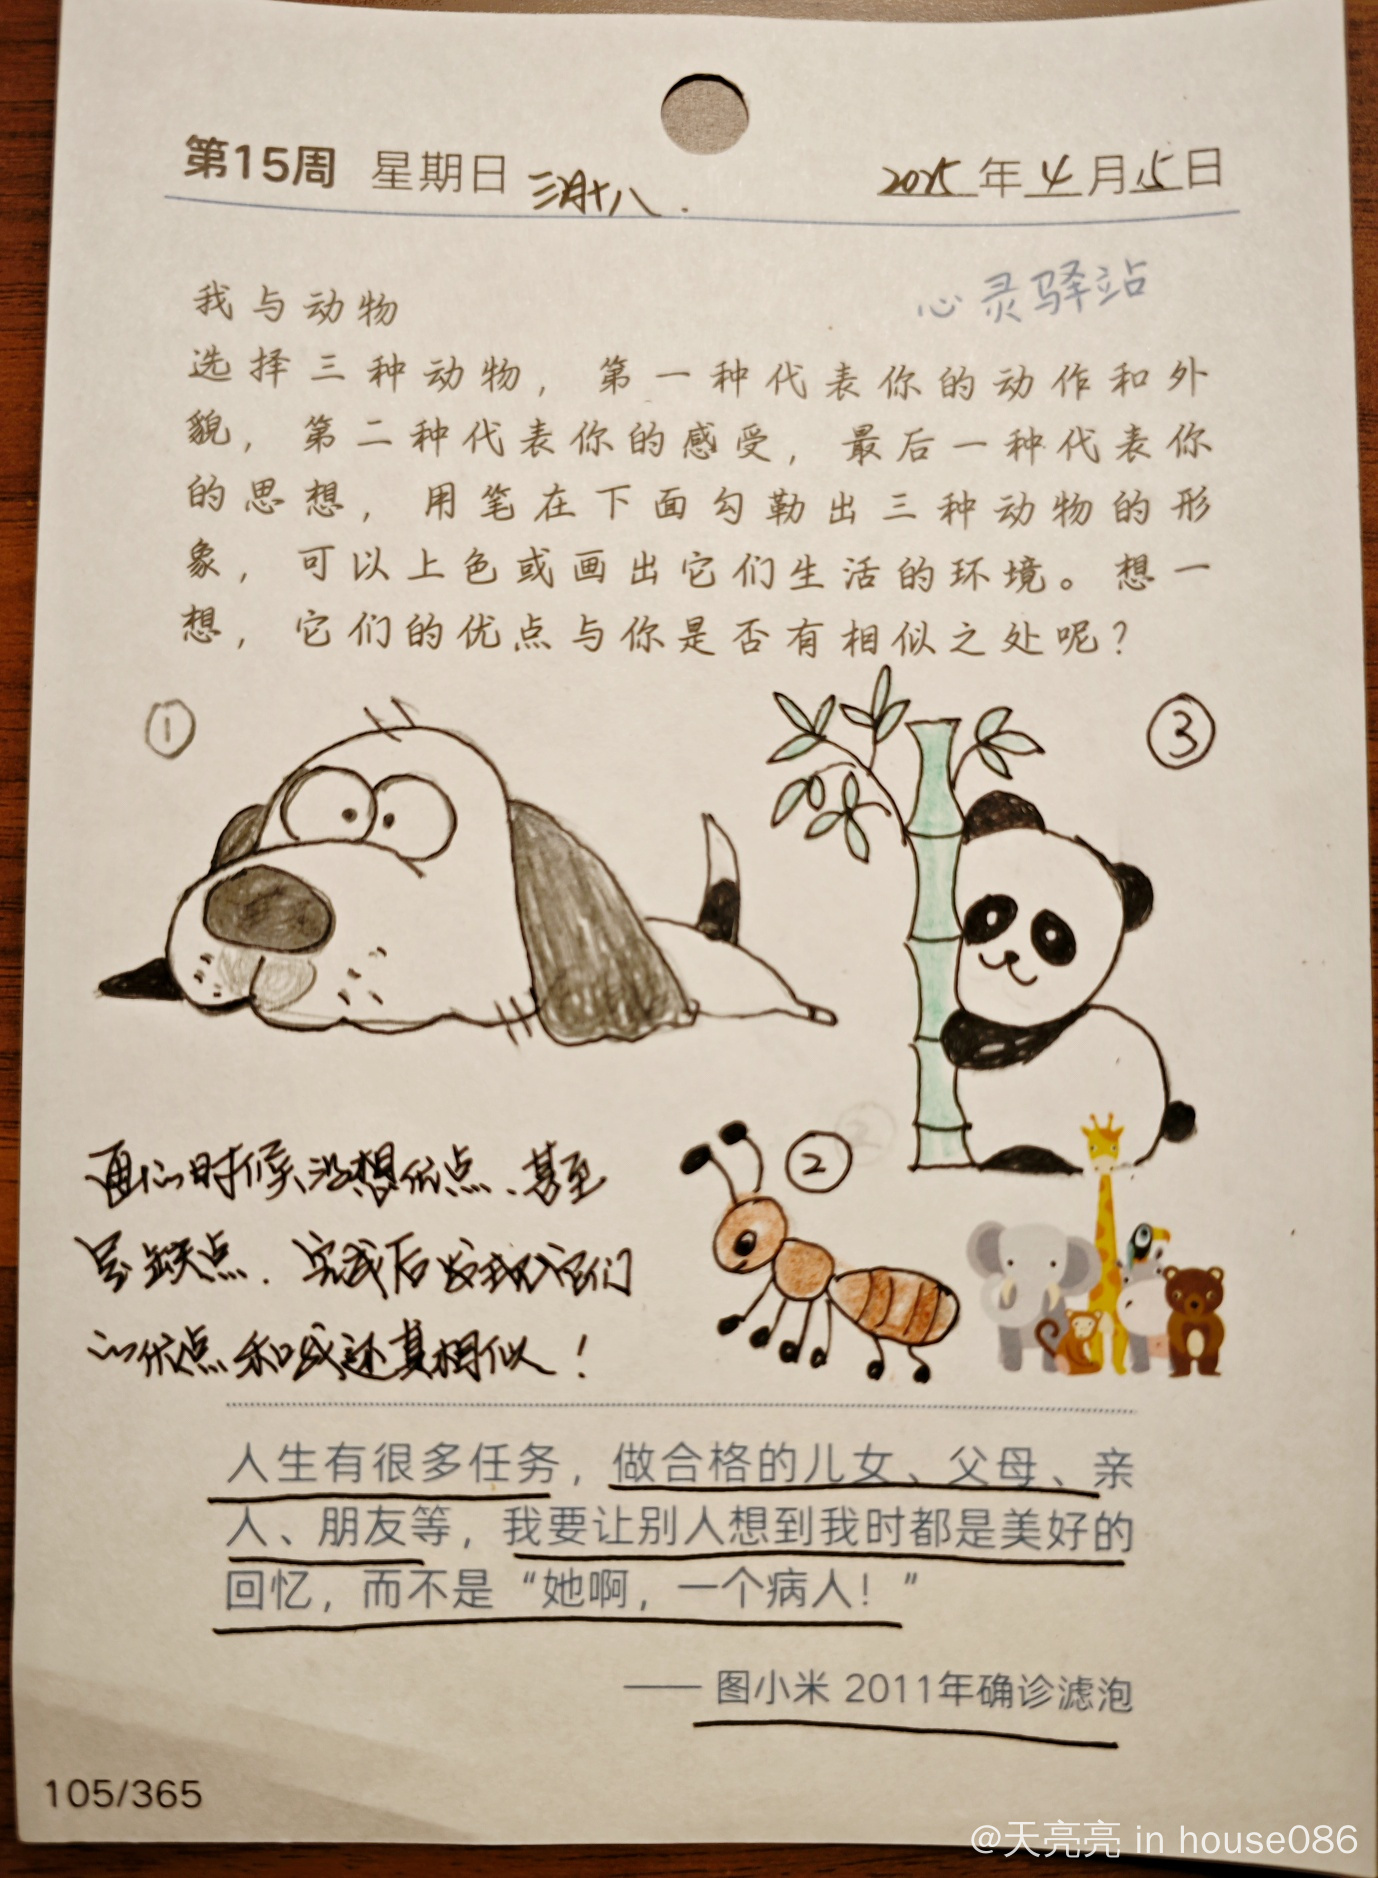 第15周 星期日 三月十八.
2025年4月15日
心灵驿站
我与动物
选择三种动物，第一种代表你的动作和外
貌，第二种代表你的感受，最后一种代表你
的思想，用笔在下面勾勒出三种动物的形
象，可以上色或画出它们生活的环境。想一
想，它们的优点与你是否有相似之处呢？
①
③
②
画的时候没想优点、甚至
写缺点．完成后发现它们
的优点和我还真相似！
人生有很多任务，做合格的儿女、父母、亲
人、朋友等，我要让别人想到我时都是美好的
回忆，而不是“她啊，一个病人！”
—— 图小米 2011年确诊滤泡
105/365
@天亮亮 in house086